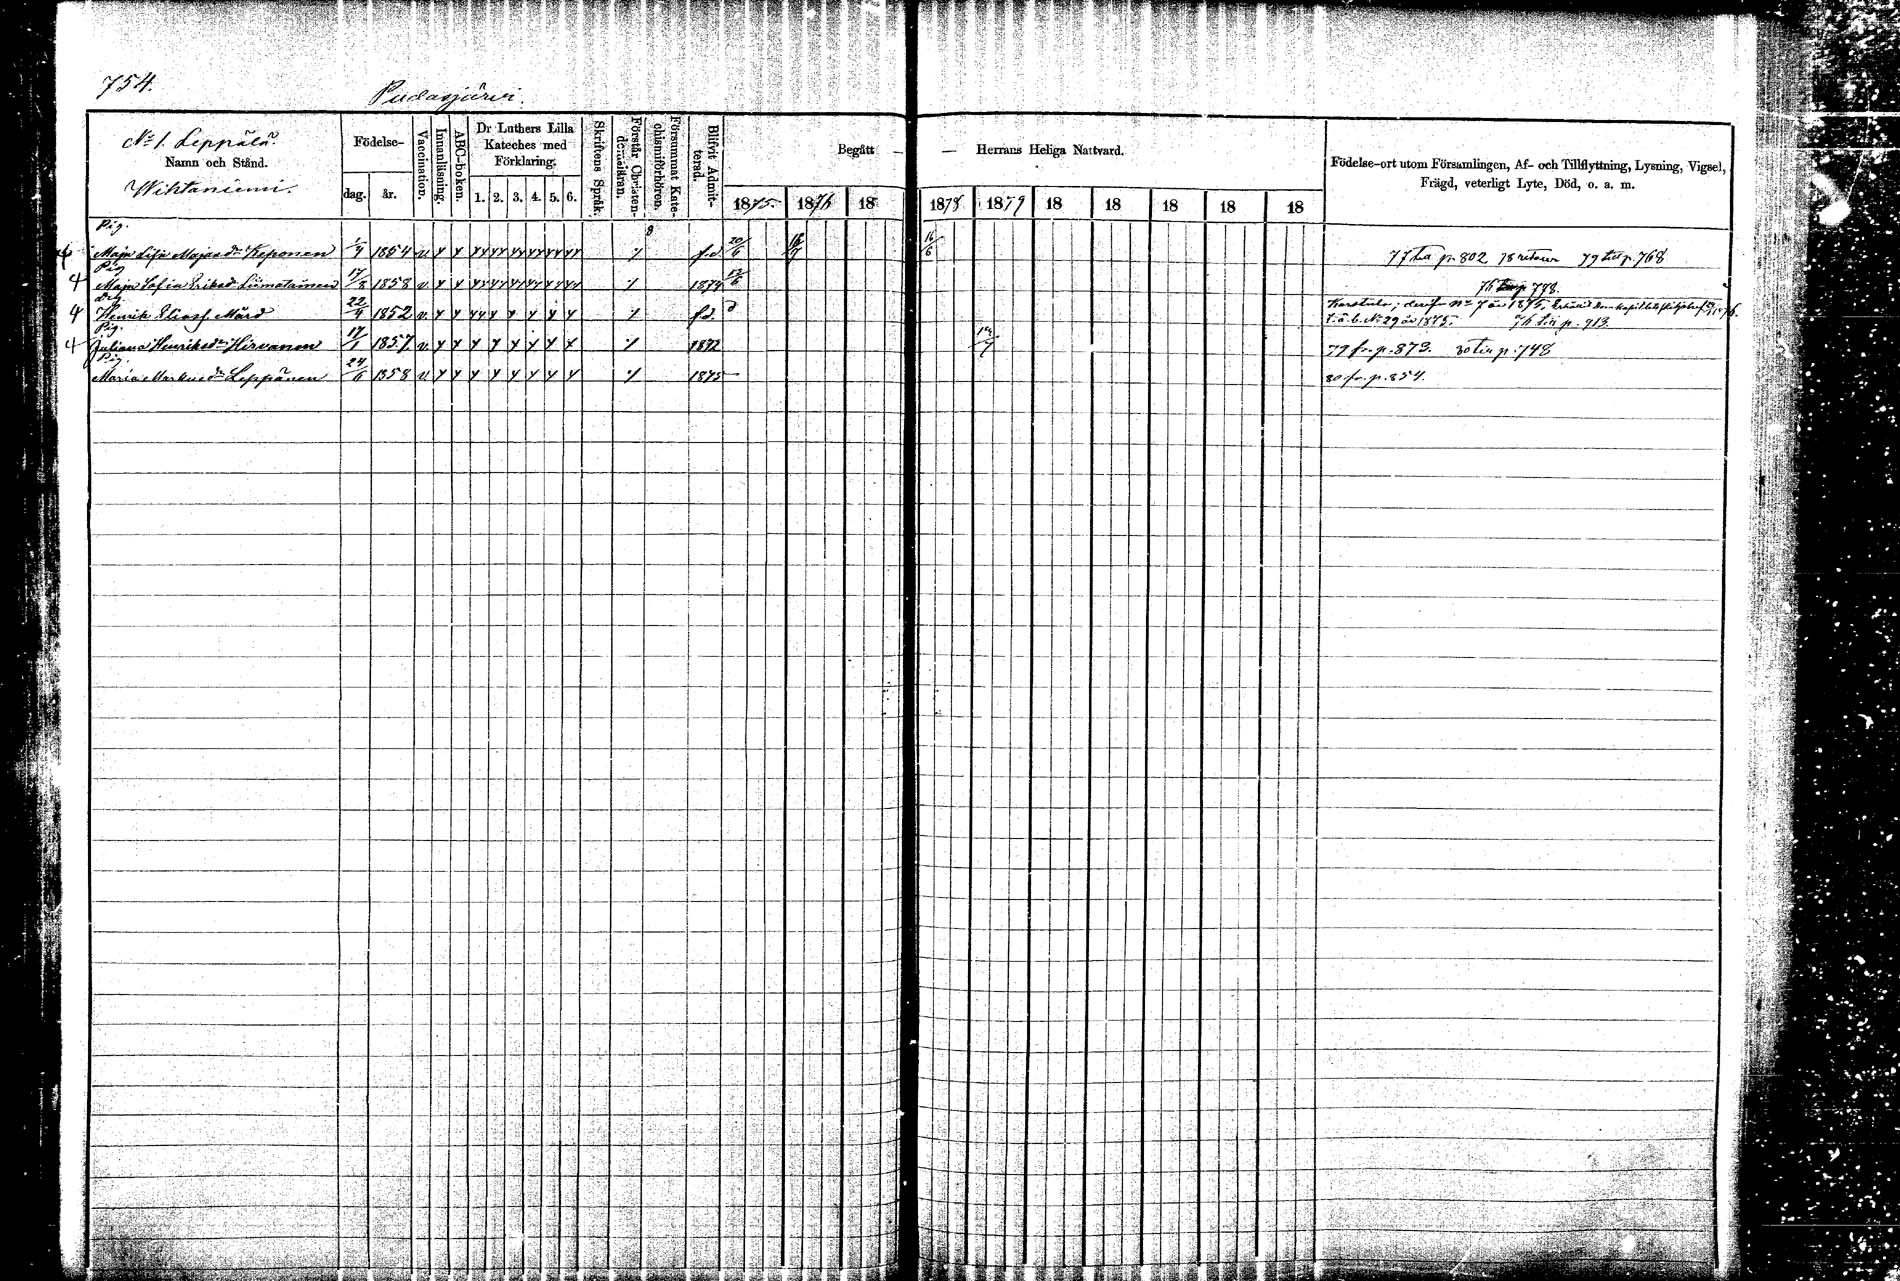 754.
Pudasjärvi.
No 1. Leppälä.
Namn och Stånd.
Wihtaniemi.
Födelse-
dag. år.
Vaccination.
Innanläsning.
ABC-boken.
Dr Luthers Lilla
Kateches med
Förklaring.
1. 2. 3. 4. 5. 6.
Skriftens Språk.
Förstår Christen-
domsläran.
Försummat Kate-
chismiförhören.
Blifvit Admit-
terad.
Begått — — Herrans Heliga Nattvard.
1875. 1876 18 1878 1879 18 18 18 18 18
Födelse-ort utom Församlingen, Af- och Tillflyttning, Lysning, Vigsel,
Frägd, veterligt Lyte, Död, o. a. m.
Pig.
Maja Lisa Majasdr Keponen 1/4 1854 v. f.d. 20/6 16/6 77 p. 802 78 retour 79 till p. 768
Pig
Maja Sofia Eriksdr Liimatainen 17/8 1858 v. 1874 76 p. 778.
Drg.
Henrik Eliasf. Mård 22/4 1852 v. f.d. Karstula;
No 29 år 1875. 76 till p. 913.
Pig.
Juliana Henriksdr Hirvonen 17/1 1857 v. 1872 79 fr. p. 873. 80 till p. 748
Pig.
Maria Markusdr Leppänen 24/6 1858 v. 1875 80 fr. p. 854.